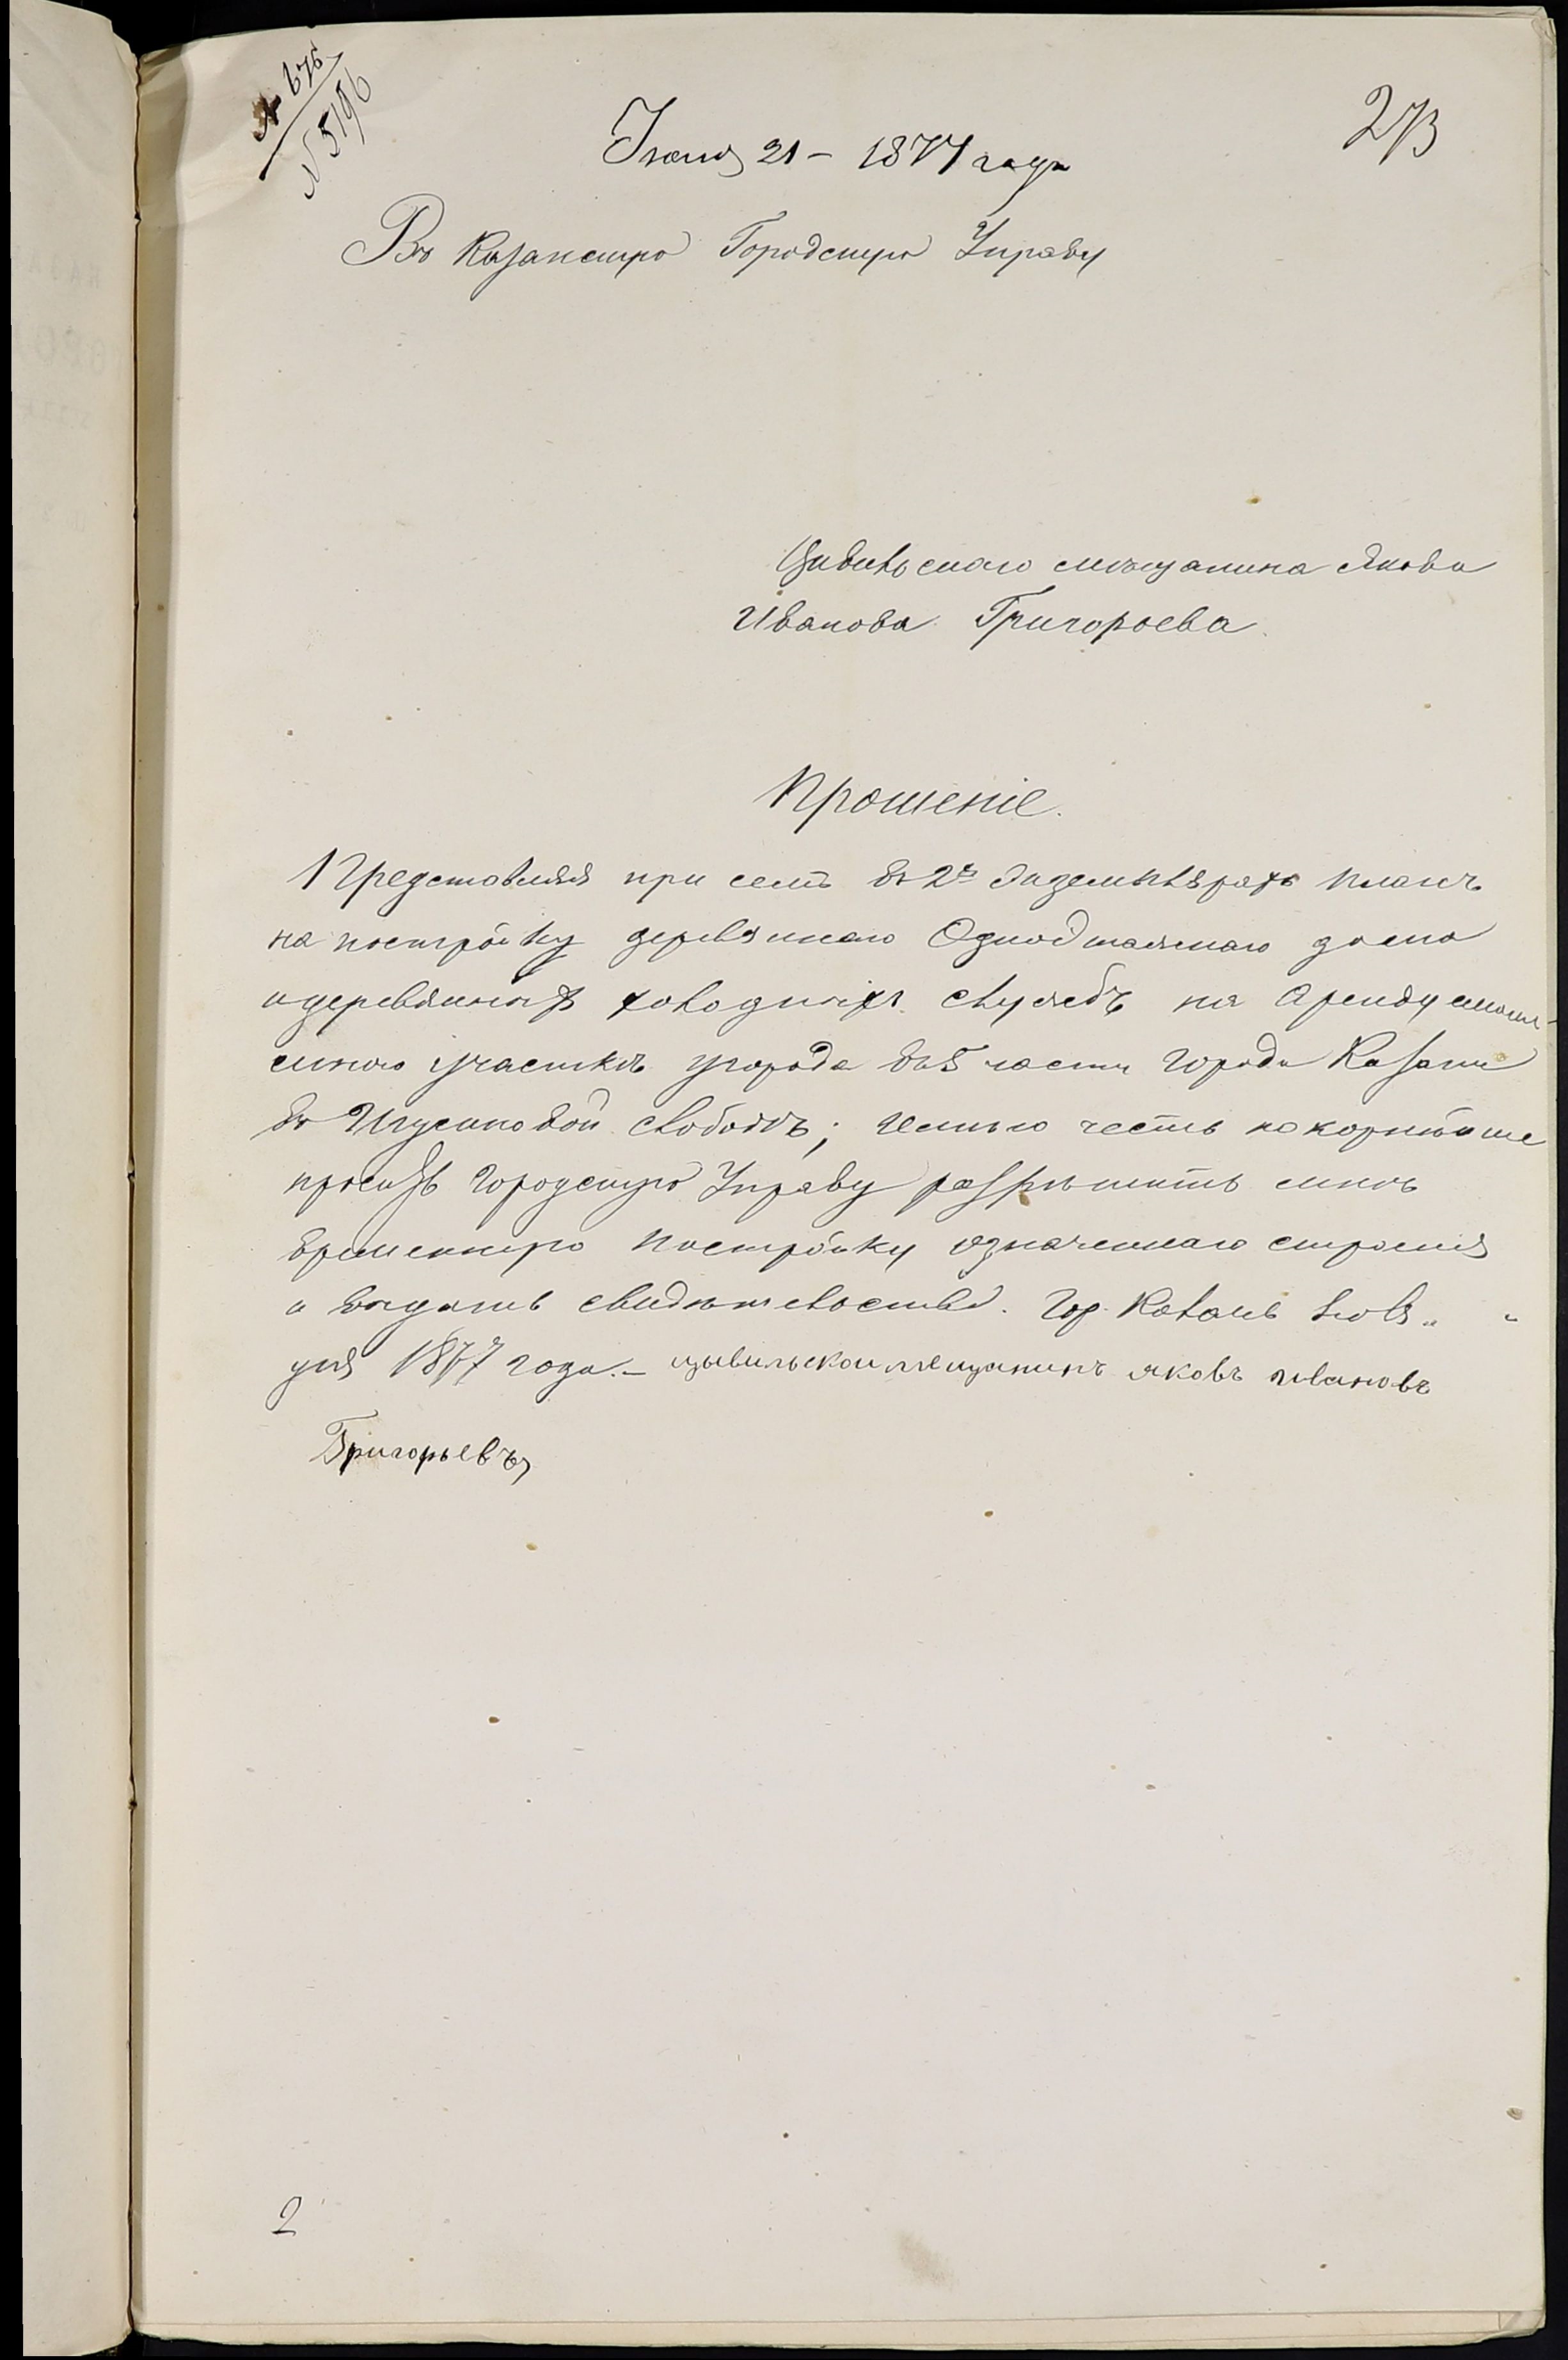 № 675
№ 5196
273
Іюня 21 – 1877 года
Въ Казанскую Городскую Управу
Цивильскаго мѣщанина Якова
Иванова Григорьева.
Прошеніе.
Представляя при семъ въ 2хъ экземплярахъ планъ
на постройку деревяннаго Одноэтажнаго дома
и деревянныхъ холодныхъ службъ на Арендуемом
участкѣ у города въ 5 части города Казани
въ слободѣ; Имѣю честь покорнѣйше
просить Городскую Управу разрѣшить мнѣ
временную постройку означеннаго строенія
и выдать свидѣтельство. Гор. Казань Іюля „ „
дня 1877 года. – цывильскои мещанинъ яковъ ивановъ
Григорьевъ
2